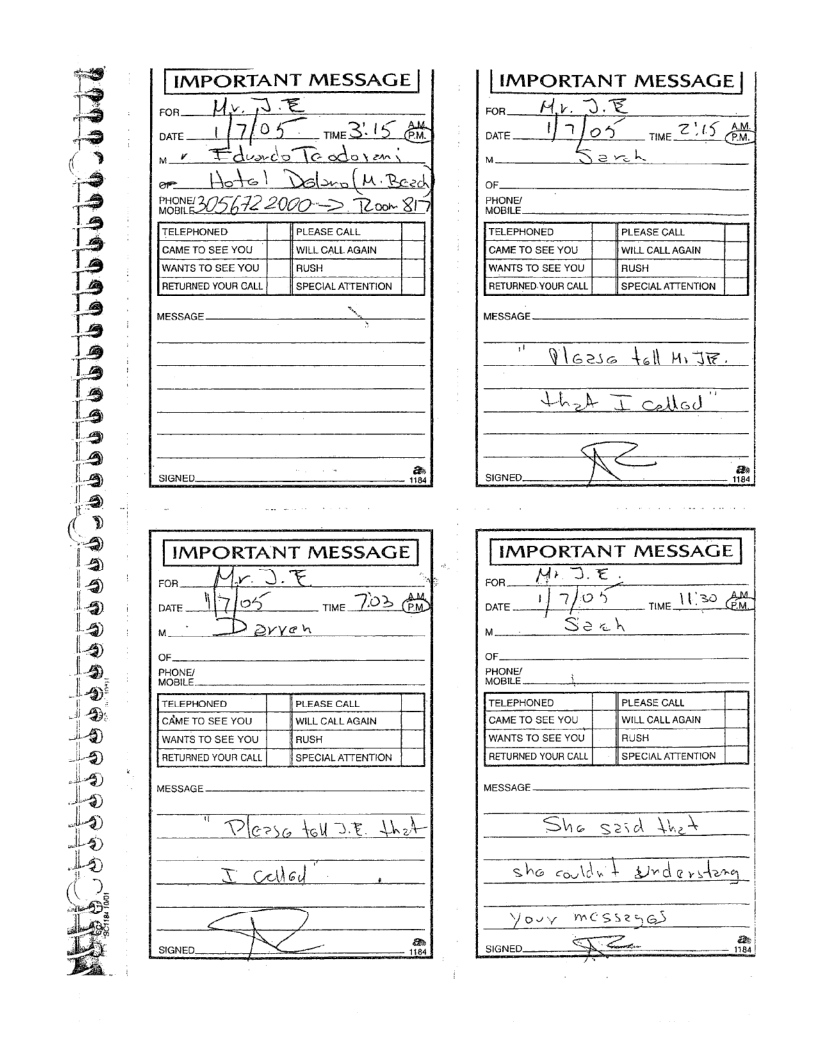 IMPORTANT MESSAGE
FOR Mr. J.E
DATE 1/7/05 TIME 3:15 A.M. P.M.
M r Eduardo Teodorani
OF Hotel Delano (M. Beach
PHONE/ MOBILE 3056722000 -> Room 817
TELEPHONED PLEASE CALL
CAME TO SEE YOU WILL CALL AGAIN
WANTS TO SEE YOU RUSH
RETURNED YOUR CALL SPECIAL ATTENTION
MESSAGE
SIGNED
1184
IMPORTANT MESSAGE
FOR Mr. J.E
DATE 1/7/05 TIME 2:15 A.M. P.M.
M Sarah
OF
PHONE/ MOBILE
TELEPHONED PLEASE CALL
CAME TO SEE YOU WILL CALL AGAIN
WANTS TO SEE YOU RUSH
RETURNED YOUR CALL SPECIAL ATTENTION
MESSAGE
" Please tell Mr JE.
that I called"
SIGNED
1184
IMPORTANT MESSAGE
FOR Mr. J.E
DATE 1/7/05 TIME 7:03 A.M. P.M.
M Darren
OF
PHONE/ MOBILE
TELEPHONED PLEASE CALL
CAME TO SEE YOU WILL CALL AGAIN
WANTS TO SEE YOU RUSH
RETURNED YOUR CALL SPECIAL ATTENTION
MESSAGE
" Please tell J.E. that
I called"
SIGNED
1184
IMPORTANT MESSAGE
FOR Mr J.E.
DATE 1/7/05 TIME 11:30 A.M. P.M.
M Sarah
OF
PHONE/ MOBILE
TELEPHONED PLEASE CALL
CAME TO SEE YOU WILL CALL AGAIN
WANTS TO SEE YOU RUSH
RETURNED YOUR CALL SPECIAL ATTENTION
MESSAGE
She said that
she couldn't understang
your messages
SIGNED
1184
SC1184 10/01